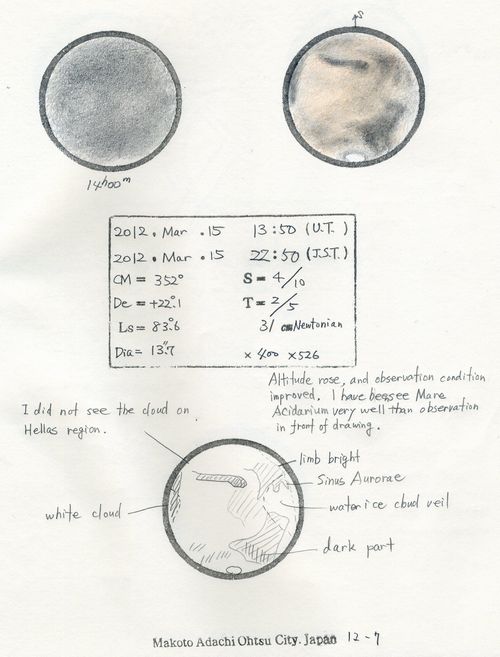 S
14h00m
2012. Mar .15 13:50 (U.T.)
2012. Mar .15 22:50 (J.S.T.)
CM = 352° S = 4/10
De = +22.°1 T = 2/5
Ls = 83.°6 31 cm Newtonian
Dia = 13."7 ×400 ×526
Altitude rose, and observation condition
improved. I have beesee Mare
Acidarium very well than observation
in front of drawing.
I did not see the cloud on
Hellas region.
limb bright
Sinus Aurorae
white cloud
water ice cloud veil
dark part
Makoto Adachi Ohtsu City. Japan 12-7